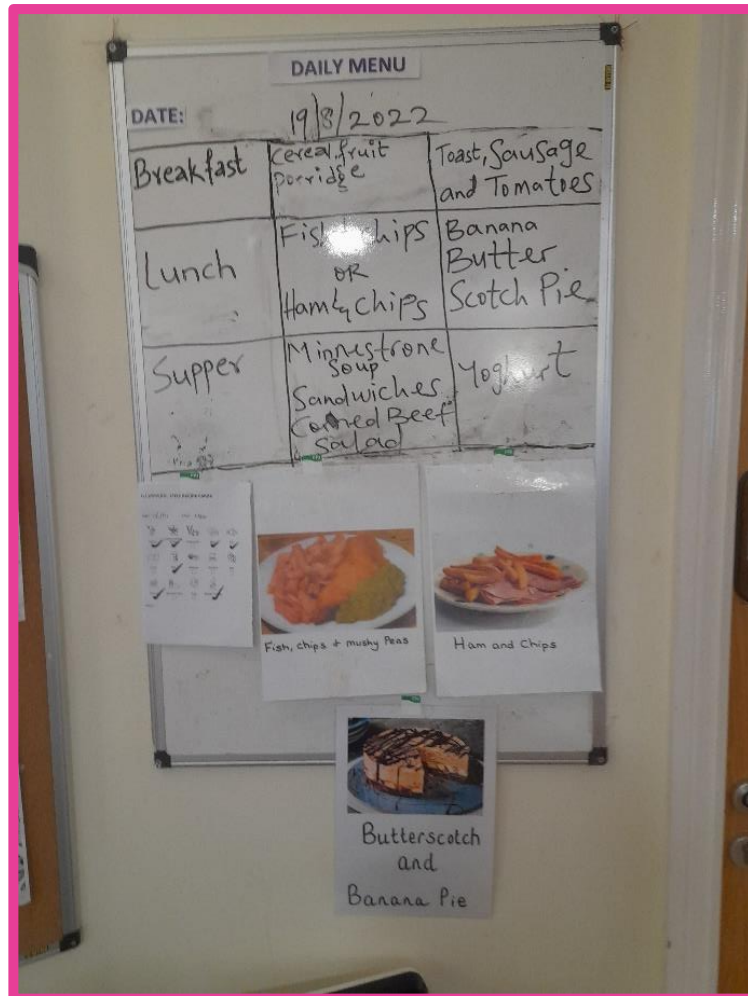 DAILY MENU
DATE: 19/8/2022
Breakfast
Cereal, fruit
Porridge
Toast, Sausage
and Tomatoes
Lunch
Fish Chips
OR
Ham & Chips
Banana
Butter
Scotch Pie
Supper
Minnestrone
Soup
Sandwiches
Corned Beef
Salad
Yoghurt
Fish, chips + mushy Peas
Ham and Chips
Butterscotch
and
Banana Pie